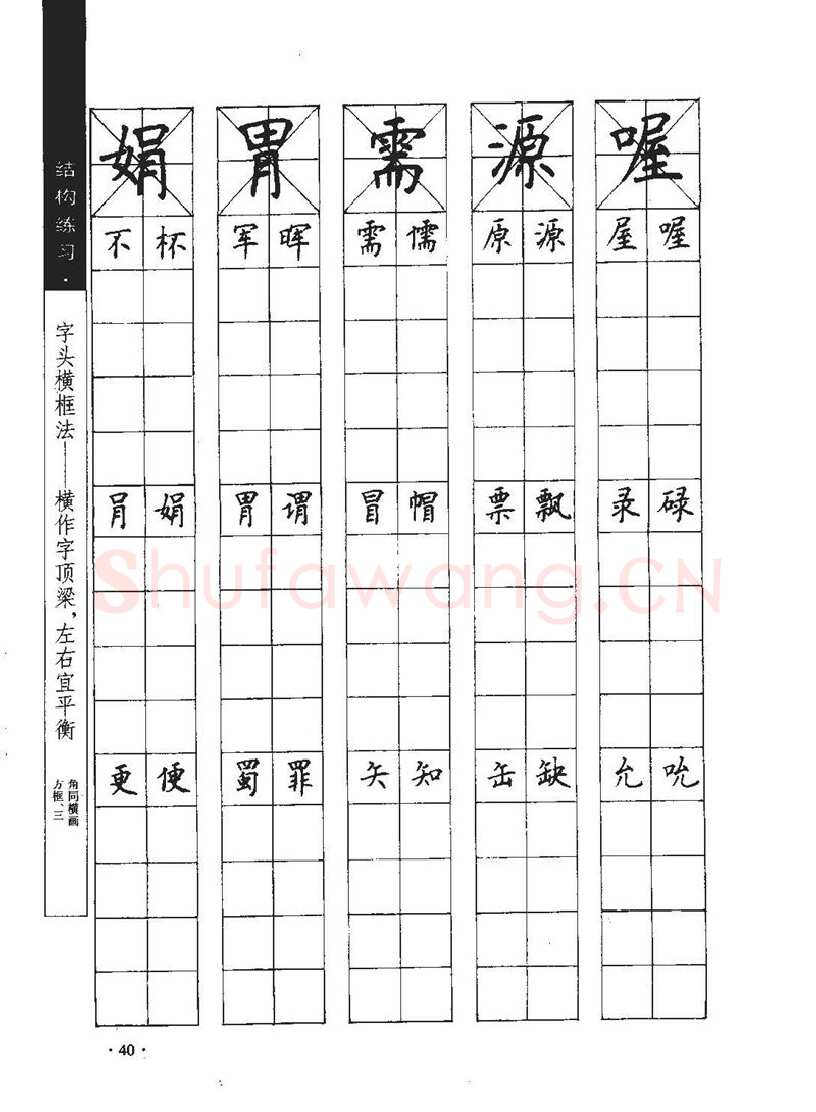 结构练习·
字头横框法——横作字顶梁，左右宜平衡
方框、三
角同横画
娟 胃 需 源 喔
不 杯 军 晖 需 懦 原 源 屋 喔
肙 娟 胃 谓 冒 帽 票 飘 录 碌
更 便 蜀 罪 矢 知 缶 缺 允 吮
Shufawang.CN
·40·